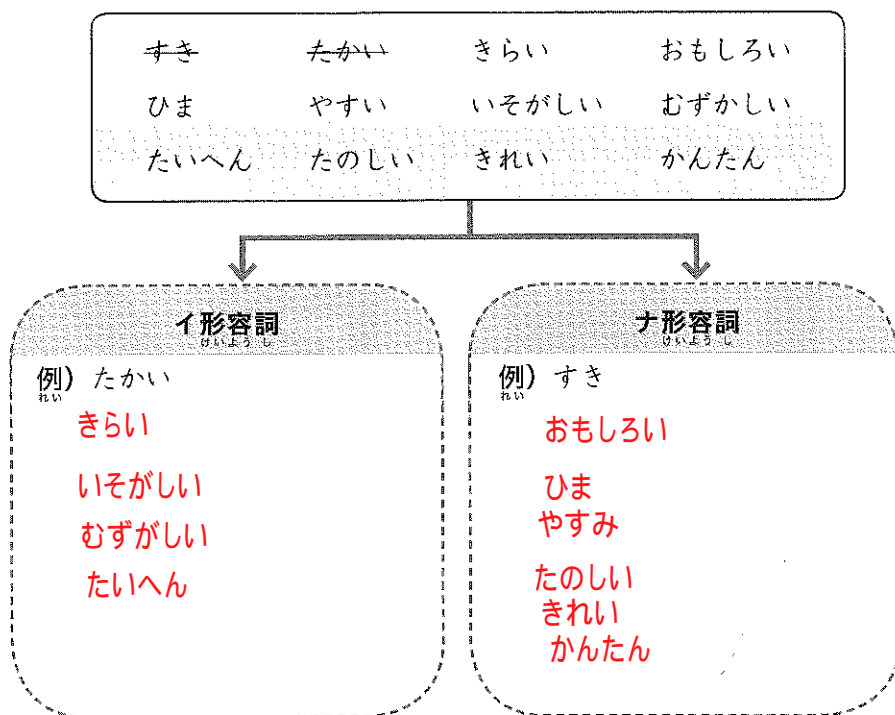 すき たかい きらい おもしろい
ひま やすい いそがしい むずかしい
たいへん たのしい きれい かんたん
イ形容詞
けいようし
例) たかい
れい
きらい
いそがしい
むずがしい
たいへん
ナ形容詞
けいようし
例) すき
れい
おもしろい
ひま
やすみ
たのしい
きれい
かんたん